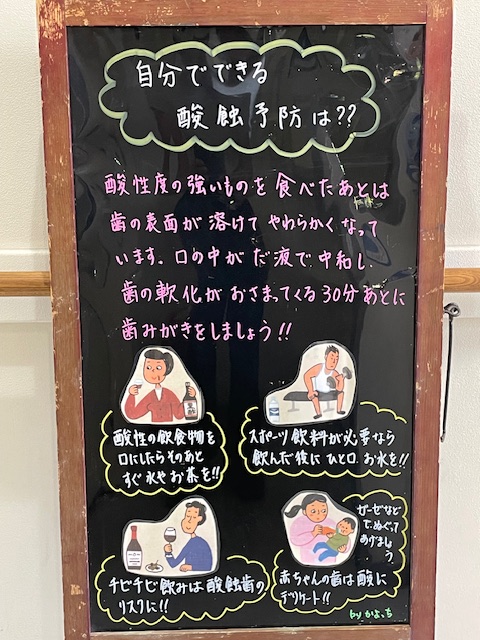 自分でできる
酸蝕予防は??
酸性度の強いものを食べたあとは
歯の表面が溶けてやわらかくなって
います。口の中がだ液で中和し
歯の軟化がおさまってくる30分あとに
歯みがきをしましょう!!
黒酢
酸性の飲食物を
口にしたらそのあと
すぐ水やお茶を!!
スポーツ飲料が必要なら
飲んだ後にひと口、お水を!!
チビチビ飲みは酸蝕歯の
リスクに!!
ガーゼなど
でぬぐって
あげましょ
う。
赤ちゃんの歯は酸に
デリケート!!
by かよっち